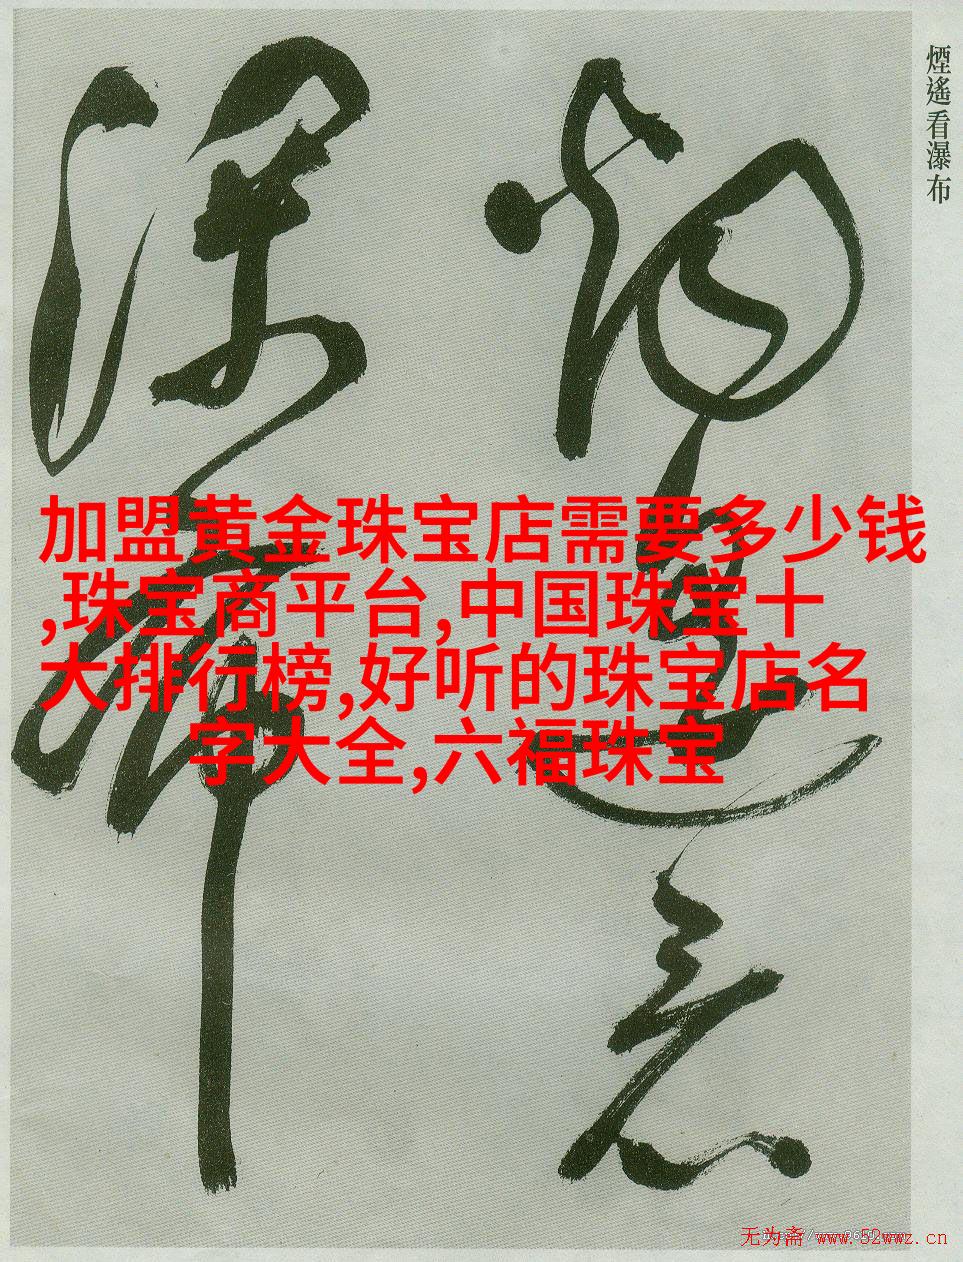 煙遙看瀑布
煙遙看
瀑布
加盟黄金珠宝店需要多少钱
,珠宝商平台,中国珠宝十
大排行榜,好听的珠宝店名
字大全,六福珠宝
无为斋 www.52wwz.cn